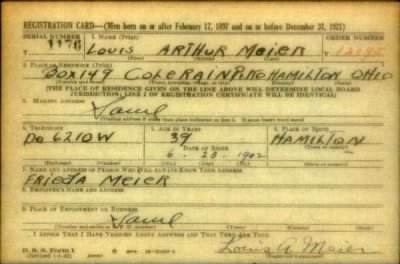 REGISTRATION CARD—(Men born on or after February 17, 1897 and on or before December 31, 1921)
SERIAL NUMBER
1. NAME (Print)
ORDER NUMBER
1176
LOUIS ARTHUR MEIER
(First) (Middle) (Last)
2. PLACE OF RESIDENCE (Print)
BOX 149 COLERAIN PK HAMILTON OHIO
(THE PLACE OF RESIDENCE GIVEN ON THE LINE ABOVE WILL DETERMINE LOCAL BOARD
JURISDICTION; LINE 2 OF REGISTRATION CERTIFICATE WILL BE IDENTICAL)
3. MAILING ADDRESS
Same
(Mailing address if other than place indicated on line 2. If same insert word same)
4. TELEPHONE
5. AGE IN YEARS
6. PLACE OF BIRTH
DO 6210W
39
HAMILTON
DATE OF BIRTH
6 23 1902
OHIO
(Mo.) (Day) (Yr.)
7. NAME AND ADDRESS OF PERSON WHO WILL ALWAYS KNOW YOUR ADDRESS
FRIEDA MEIER
8. EMPLOYER'S NAME AND ADDRESS
9. PLACE OF EMPLOYMENT OR BUSINESS
Same
I AFFIRM THAT I HAVE VERIFIED ABOVE ANSWERS AND THAT THEY ARE TRUE.
D. S. S. Form 1
(Revised 1-1-42)
Louis A Meier